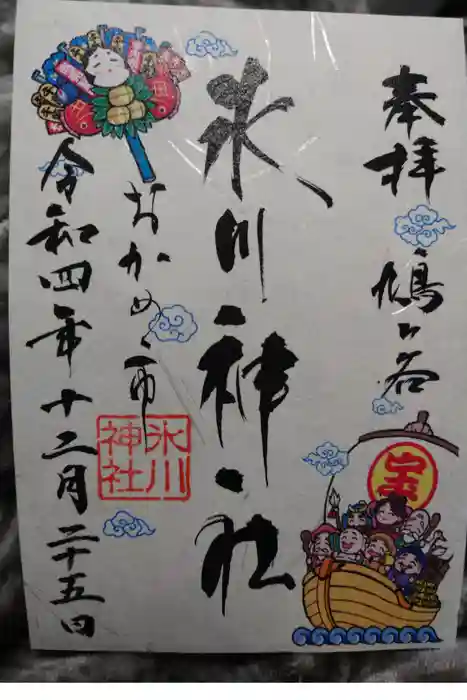 奉拝
鳩ヶ谷
氷川神社
おかめ市
令和四年十二月二十五日
氷川
神社
宝